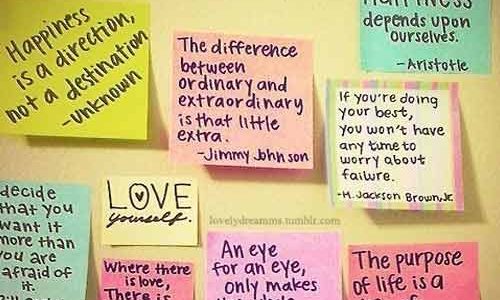 Happiness
is a direction,
not a destination
-unknown
The difference
between
ordinary and
extraordinary
is that little
extra.
-Jimmy Johnson
Happiness
depends upon
ourselves.
-Aristotle
If you're doing
your best,
you won't have
any time to
worry about
failure.
-H. Jackson Brown, Jr.
decide
that you
want it
more than
you are
afraid of
it.
LOVE
yourself.
lovelydreamms.tumblr.com
Where there
is love,
There is
An eye
for an eye,
only makes
The purpose
of life is a